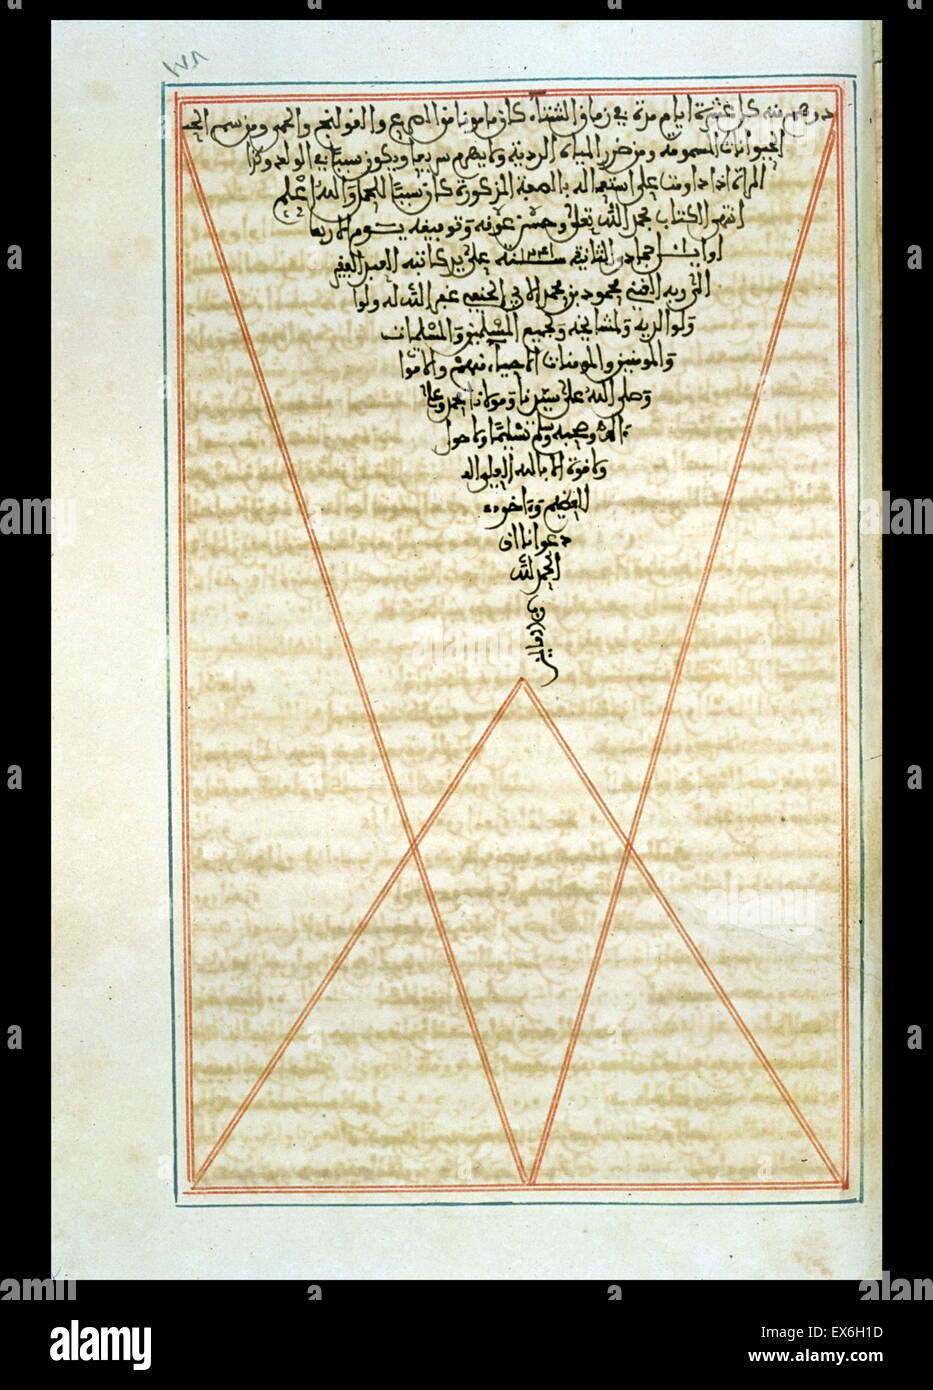 ١٧٨
درهم منه كل عشرة ايام مرة في زمان الشتاء كان مامونا من الصرع والقولنج والحمى ومن سم
الحيوانات المسمومة ومن ضرر المياه الردية ولا يهرم سريعا ويكون سببا في الولد وكذا
المراة اذا داومت على استعماله بالصفة المذكورة كان سببا للحمل والله اعلم
انتهى الكتاب بحمد الله تعلى وحسن عونه وتوفيقه يوم الاربعا
اوايل جمادى الثانية سنة على يد كاتبه العبد الفقير
محمود بن محمد الحنفي غفر الله له ولوا
ولوالديه ولمشايخه ولجميع المسلمين والمسلمات
والمومنين والمومنات الاحياء منهم والاموا
وصلى الله على سيدنا ومولانا محمد وعلى
اله وصحبه وسلم تسليما ولا حول
ولا قوة الا بالله العلي
العظيم وءاخر
دعوانا ان
الحمد لله
رب العالمين
alamy
alamy stock photo
EX6H1D
www.alamy.com